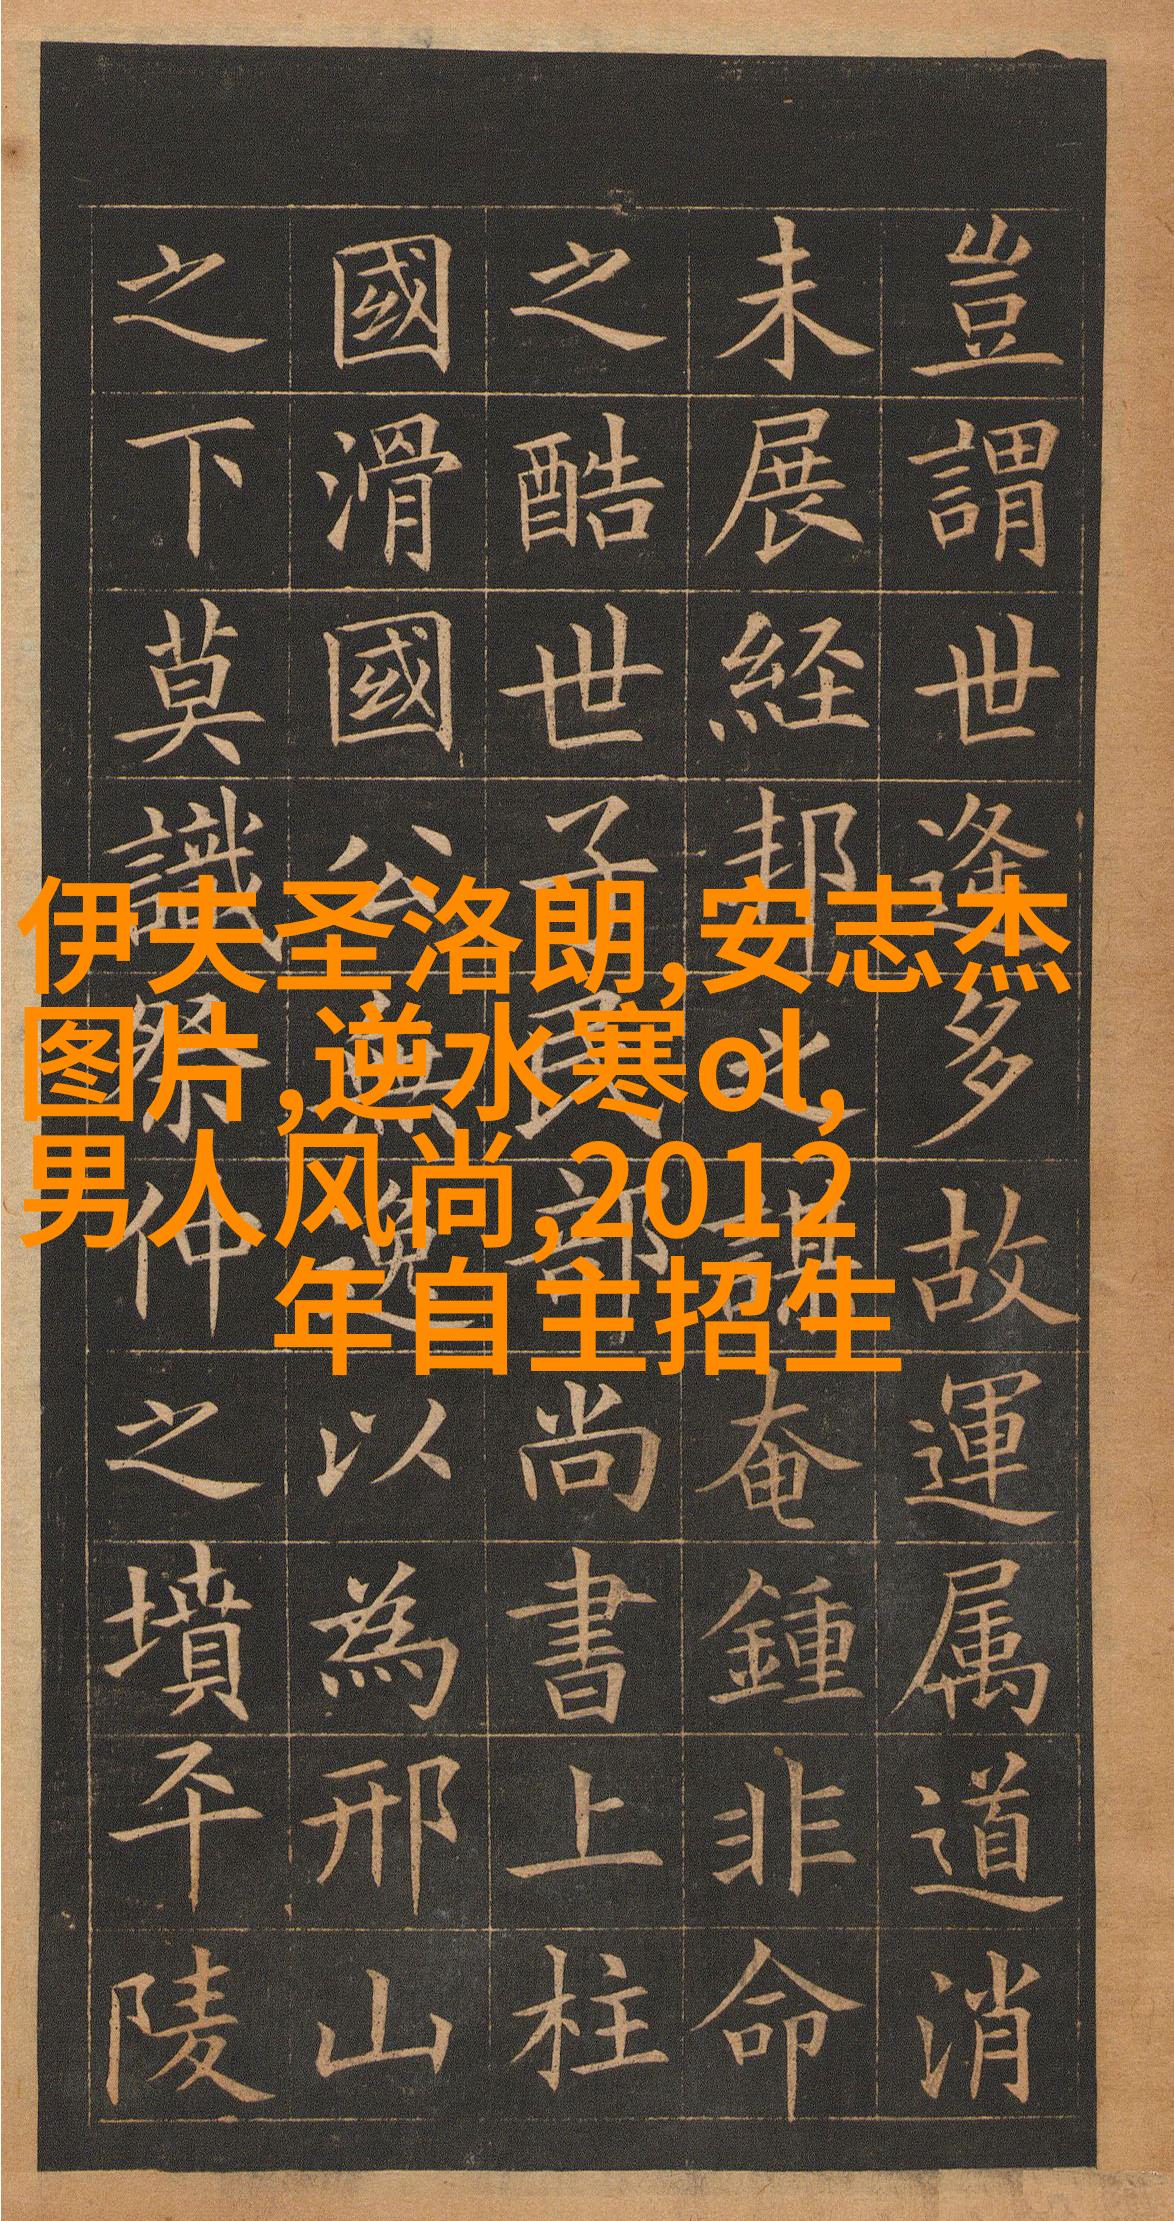 豈謂世逢多故運属道消
未展経邦之謀奄鍾非命
之酷世子民部尚書上柱
國滑國公無逸以為邢山
之下莫識祭仲之墳平陵
伊夫圣洛朗,安志杰
图片,逆水寒ol,
男人风尚,2012
年自主招生